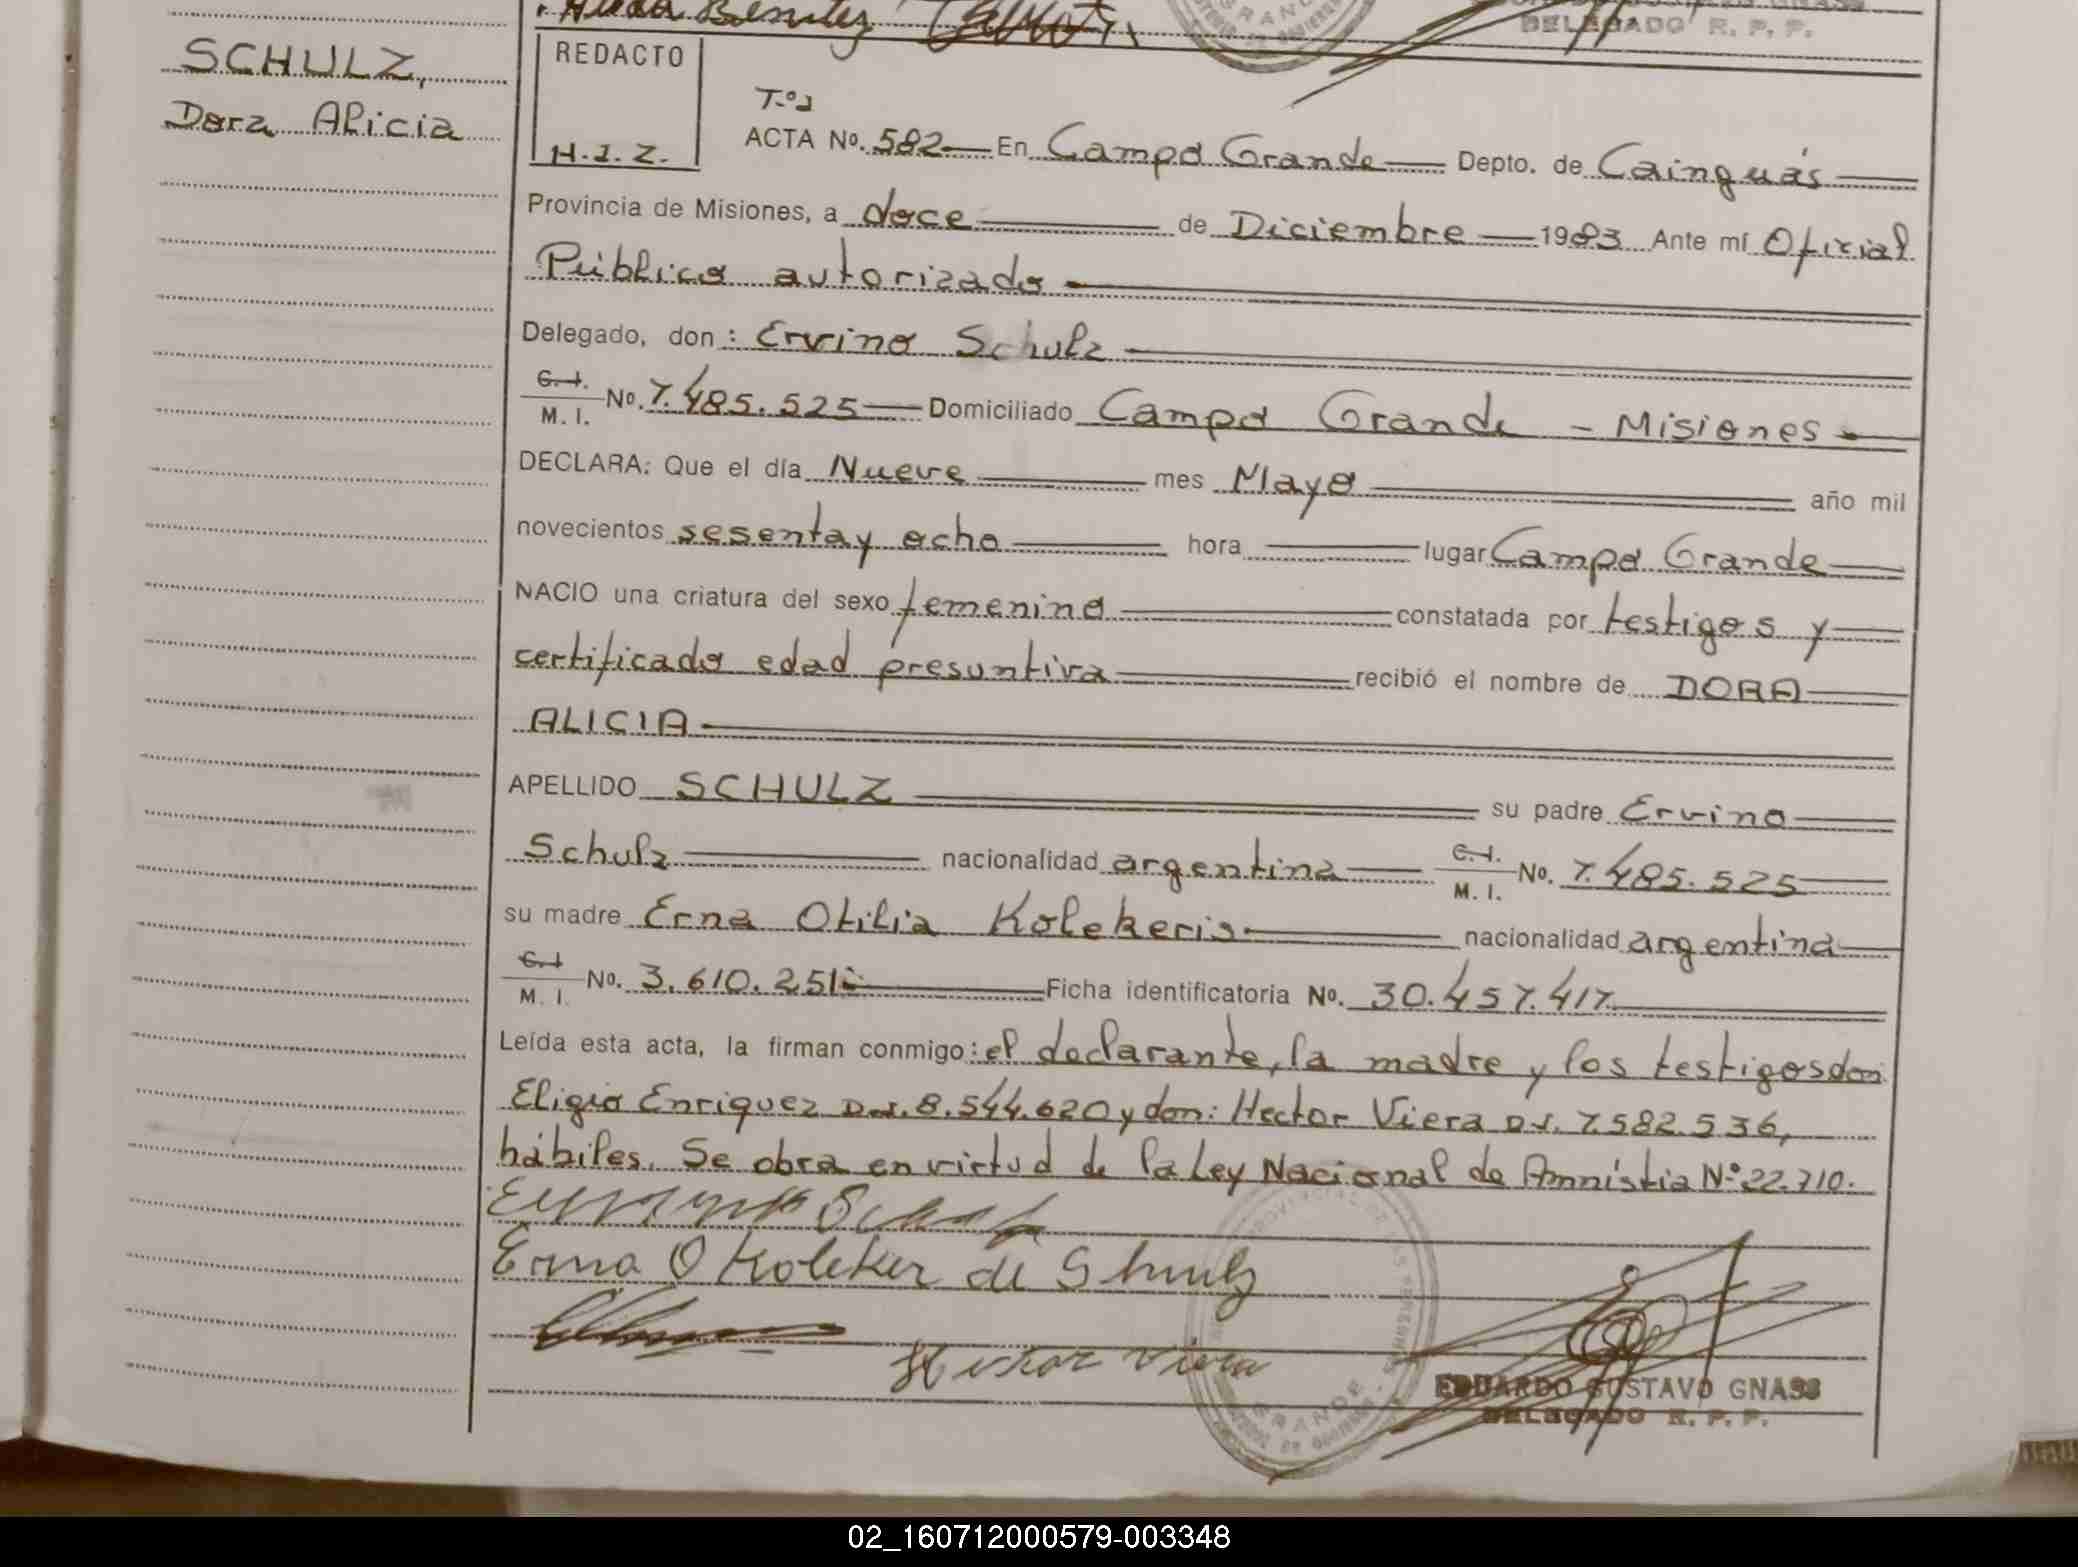 Alida Benitez
DELEGADO R. P. P.
SCHULZ,
Dora Alicia
REDACTO
H.J.Z.
Tº1
ACTA Nº. 582 En Campo Grande Depto. de Cainguás
Provincia de Misiones, a doce de Diciembre 1983 Ante mí Oficial
Público autorizado
Delegado, don: Ervino Schulz
C.I. M. I. Nº. 7.485.525 Domiciliado Campo Grande - Misiones
DECLARA: Que el día Nueve mes Mayo año mil
novecientos sesenta y ocho hora lugar Campo Grande
NACIO una criatura del sexo femenino constatada por testigos y
certificado edad presuntiva recibió el nombre de DORA
ALICIA
APELLIDO SCHULZ su padre Ervino
Schulz nacionalidad argentina C.I. M. I. Nº. 7.485.525
su madre Erna Otilia Kolekeris nacionalidad argentina
C.I M. I. Nº. 3.610.251 Ficha identificatoria Nº. 30.457.417
Leída esta acta, la firman conmigo: el declarante, la madre y los testigos don
Eligio Enriquez D.I. 8.544.620 y don: Hector Viera D.I. 7.582.536,
hábiles. Se obra en virtud de la Ley Nacional de Amnistia Nº 22.710.
Erna O Koleker de Shulz
Hector Viera
GRANDE
EDUARDO GUSTAVO GNASS
DELEGADO R. P. P.
02_160712000579-003348